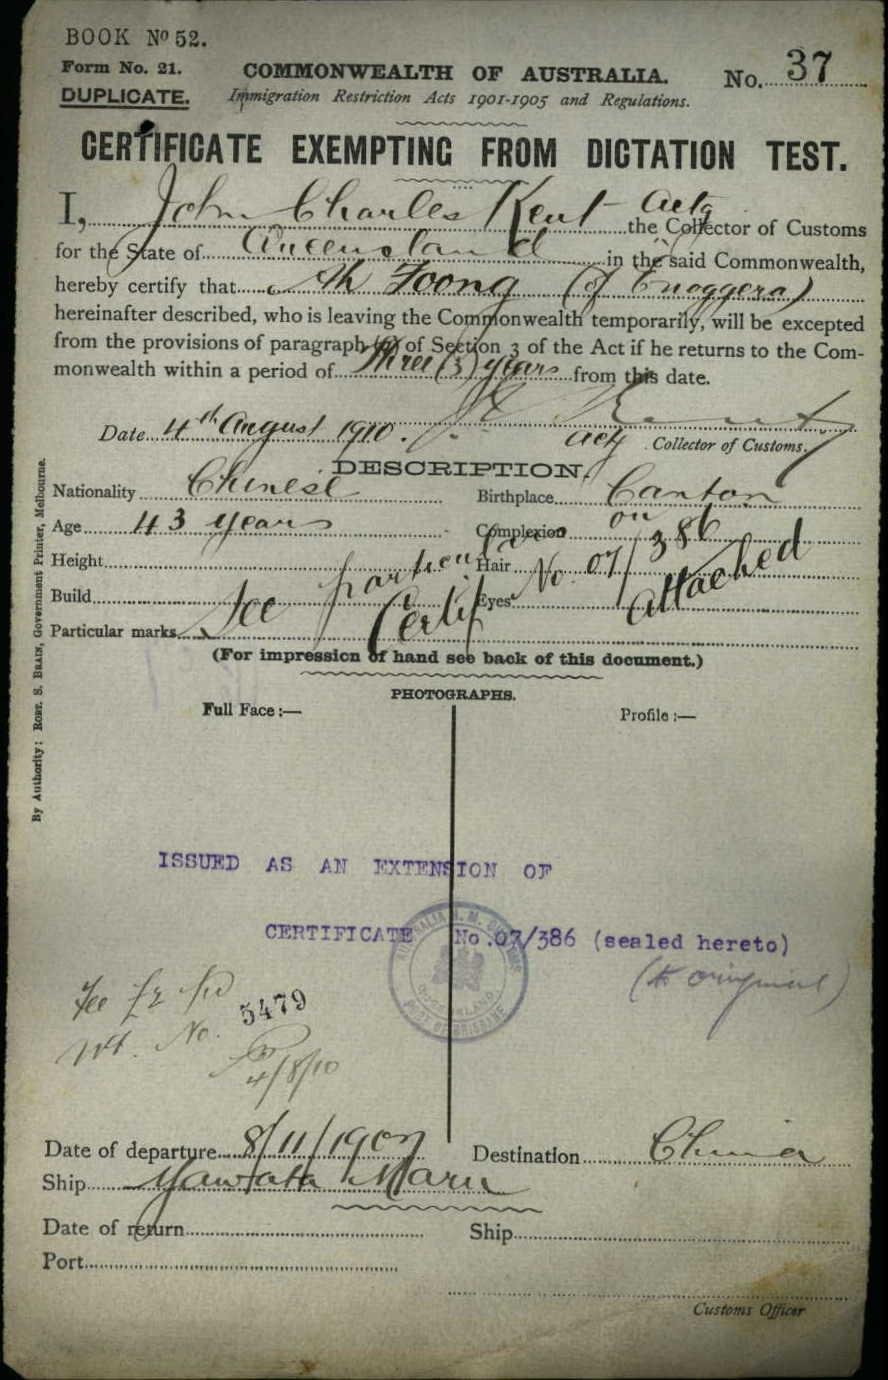 BOOK No 52.
Form No. 21.
DUPLICATE.
COMMONWEALTH OF AUSTRALIA.
Immigration Restriction Acts 1901-1905 and Regulations.
No. 37
CERTIFICATE EXEMPTING FROM DICTATION TEST.
I, John Charles Kent Actg the Collector of Customs
for the State of Queensland in the said Commonwealth,
hereby certify that Ah Foong (of Enoggera)
hereinafter described, who is leaving the Commonwealth temporarily, will be excepted
from the provisions of paragraph (a) of Section 3 of the Act if he returns to the Com-
monwealth within a period of Three (3) years from this date.
J C Kent
Date 4th August 1910. Actg Collector of Customs.
DESCRIPTION.
Nationality Chinese Birthplace Canton
Age 43 years Complexion
Height Hair
Build Eyes
Particular marks
See particulars on
Certif No. 07/386 attached
(For impression of hand see back of this document.)
PHOTOGRAPHS.
Full Face:— Profile:—
ISSUED AS AN EXTENSION OF
CERTIFICATE No.07/386 (sealed hereto)
(to original)
Fee £1 pd
No. 5479
4/8/10
AUSTRALIA H. M. CUSTOMS
QUEENSLAND
PORT OF BRISBANE
Date of departure 8/11/1907 Destination China
Ship Yawata Maru
Date of return Ship
Port
Customs Officer
By Authority: ROBT. S. BRAIN, Government Printer, Melbourne.